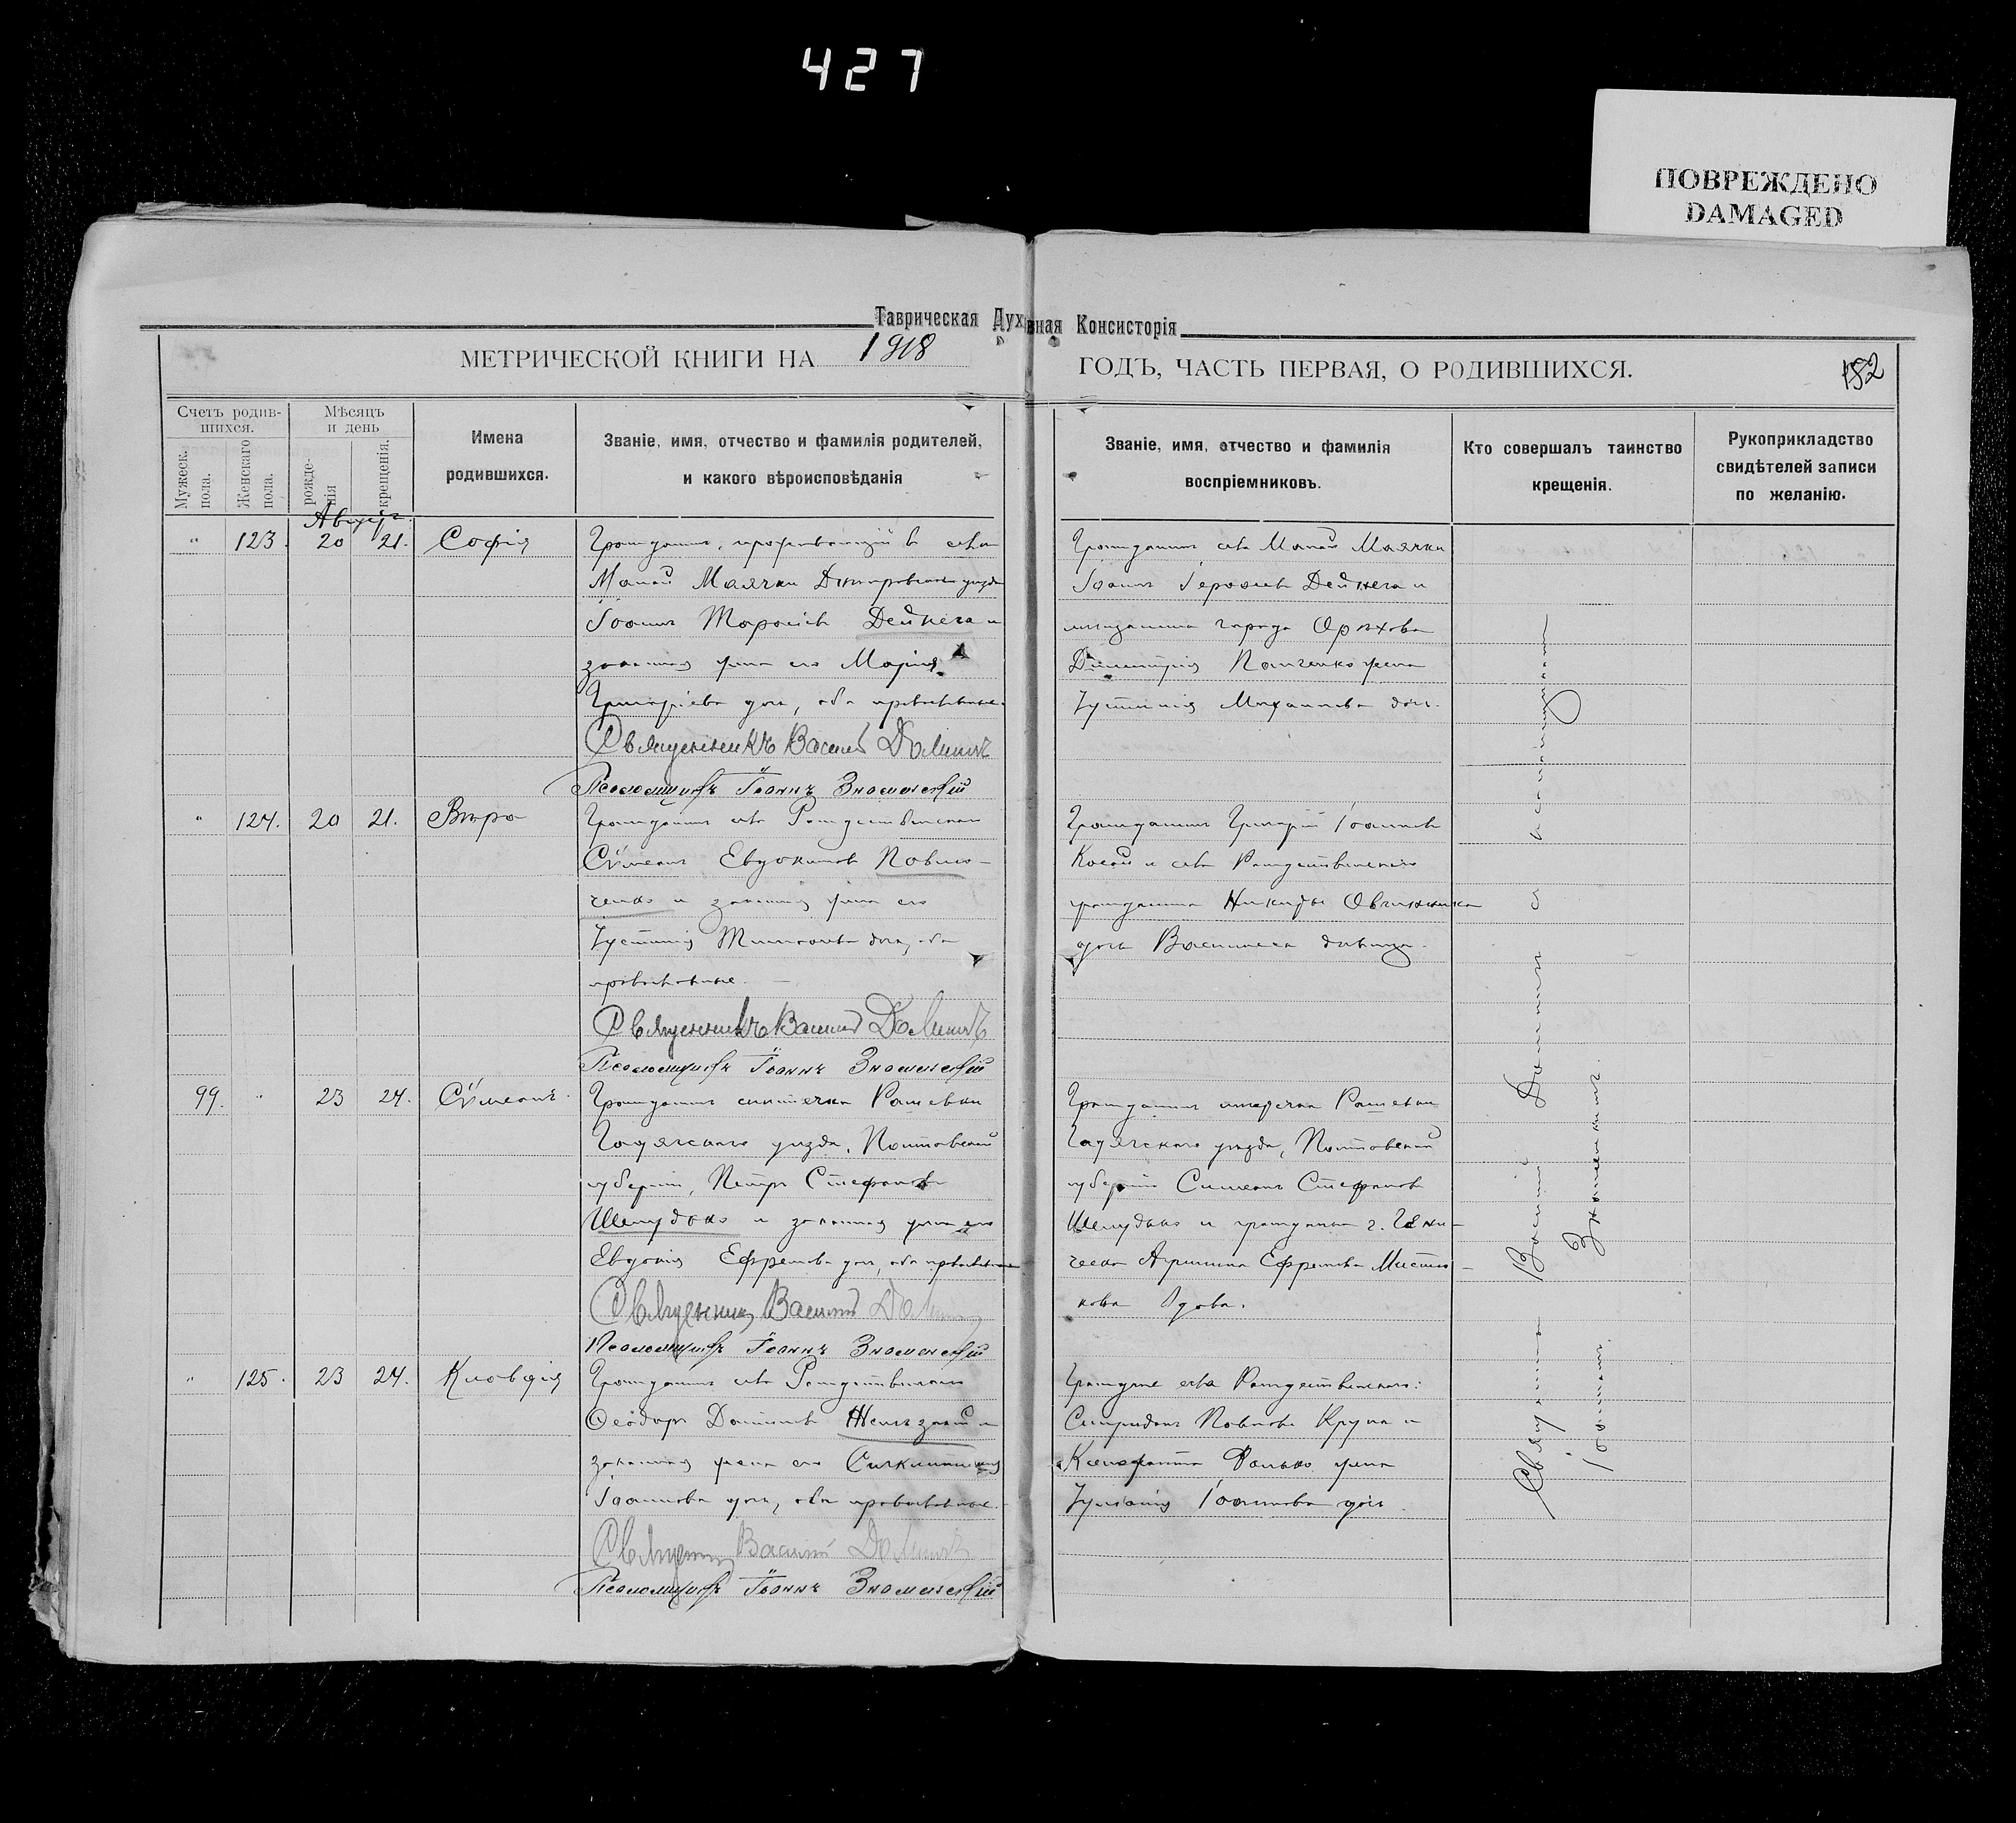 427
ПОВРЕЖДЕНО
DAMAGED
Таврическая Духовная Консисторія
МЕТРИЧЕСКОЙ КНИГИ НА 1918 ГОДЪ, ЧАСТЬ ПЕРВАЯ, О РОДИВШИХСЯ.
152
Счетъ родив-
шихся.
Мужеск. пола.
Женскаго пола.
Мѣсяцъ
и день
рожде-
нія
крещенія.
Имена
родившихся.
Званіе, имя, отчество и фамилія родителей,
и какого вѣроисповѣданія
Званіе, имя, отчество и фамилія
воспріемниковъ.
Кто совершалъ таинство
крещенія.
Рукоприкладство
свидѣтелей записи
по желанію.
Август
" 123. 20 21. Софія
Гражданинъ, проживающій в селѣ
Малой Маячки Днѣпровскаго уѣзда
Іоаннъ Дейнега и
законная жена его Марія
Григоріева доч, оба православные.
Священникъ Василий Долинъ
Псаломщикъ Іоаннъ Знаменскій
Гражданинъ села Малой Маячки
Іоаннъ Дейнега и
мѣщанина города Орѣхова
Димитрія Панченко жена
Іустинія Михаилова доч.
" 124. 20 21. Вѣра
Гражданинъ села Рождественскаго
Сѵмеонъ Евдокимовъ Павлю-
ченко и законная жена его
Іустинія доч, оба
православные.
Священникъ Василий Долинъ
Псаломщикъ Іоаннъ Знаменскій
Гражданинъ Григорій Іоанновъ
Косой и села Рождественскаго
гражданина Никиты Овчинника
доч Василиса дѣвица.
99. " 23 24. Сѵмеонъ
Гражданинъ мѣстечка Рашевки
Гадячскаго уѣзда, Полтавской
губерніи, Петръ Стефановъ
Шелудько и законная жена его
Евдокія Ефремова доч, оба православные
Священник Василий Долинъ
Псаломщикъ Іоаннъ Знаменскій
Гражданинъ мѣстечка Рашевки
Гадячскаго уѣзда, Полтавской
губерніи Симеонъ Стефановъ
Шелудько и гражданка г. Гени-
ческа Ефремова
вдова.
" 125. 23 24. Клавдія
Гражданинъ села Рождественскаго
Ѳеодоръ Желѣзный и
законная жена его
Іоаннова доч, оба православные.
Священник Василий Долинъ
Псаломщикъ Іоаннъ Знаменскій
Граждане села Рождественскаго:
Спиридонъ Павловъ Крупа и
Ксенофонта жена
Іуліанія Іоаннова доч.
Священникъ Василий Долинъ с псаломщикомъ
Іоанномъ Знаменскимъ.